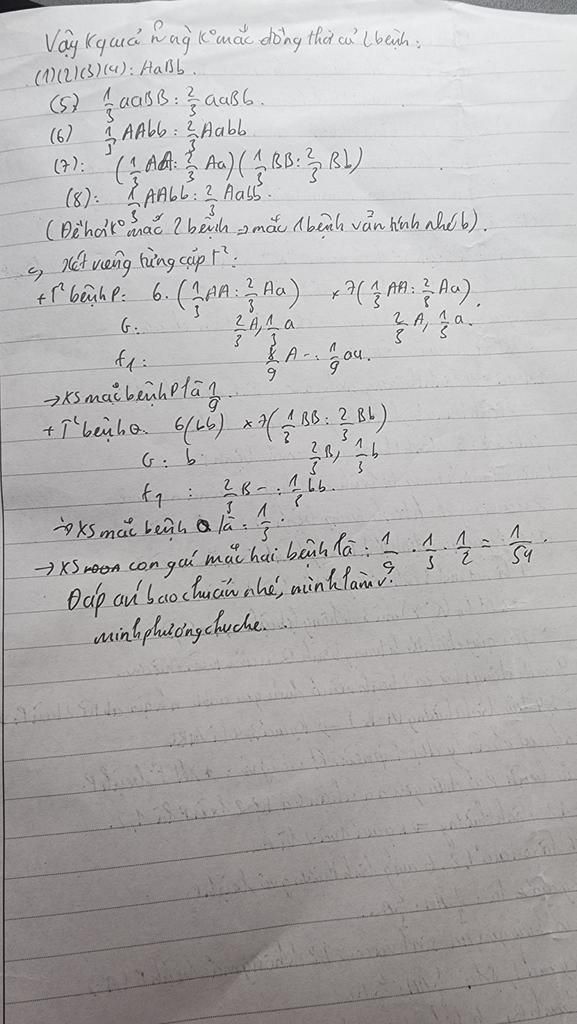 Vậy Kg của n~ ng` K° mắc đồng thời cả 2 bệnh:
(1)(2)(3)(4): AaBb.
(5) 1/3 aaBB : 2/3 aaBb.
(6) 1/3 AAbb : 2/3 Aabb
(7): (1/3 AA : 2/3 Aa)(1/3 BB : 2/3 Bb)
(8): 1/3 AAbb : 2/3 Aabb.
(Đề hỏi K° mắc 2 bệnh → mắc 1 bệnh vẫn tính nhé b).
↪ Xét riêng từng cặp T²:
+ T² bệnh P: 6. (1/3 AA : 2/3 Aa) × 7(1/3 AA : 2/3 Aa).
G: 2/3 A, 1/3 a 2/3 A, 1/3 a.
F1: 8/9 A- : 1/9 aa.
→ XS mắc bệnh P là 1/9.
+ T² bệnh Q. 6(bb) × 7(1/3 BB : 2/3 Bb)
G: b 2/3 B, 1/3 b
F1 : 2/3 B- : 1/3 bb.
→ XS mắc bệnh Q là: 1/3.
→ XS con gái mắc hai bệnh là: 1/9 . 1/3 . 1/2 = 1/54.
Đáp án bao chuẩn nhé, mình làm r.
minhphuongchuche.